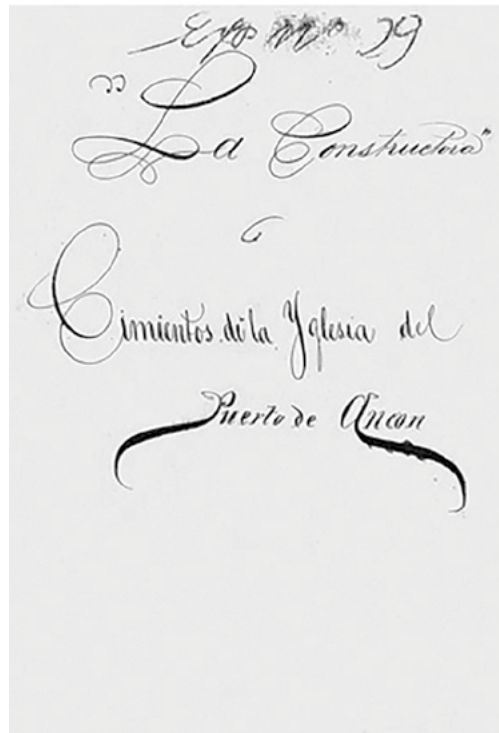 Exp Nº 39
"La Constructora"
ó
Cimientos de la Yglesia del
Puerto de Ancon